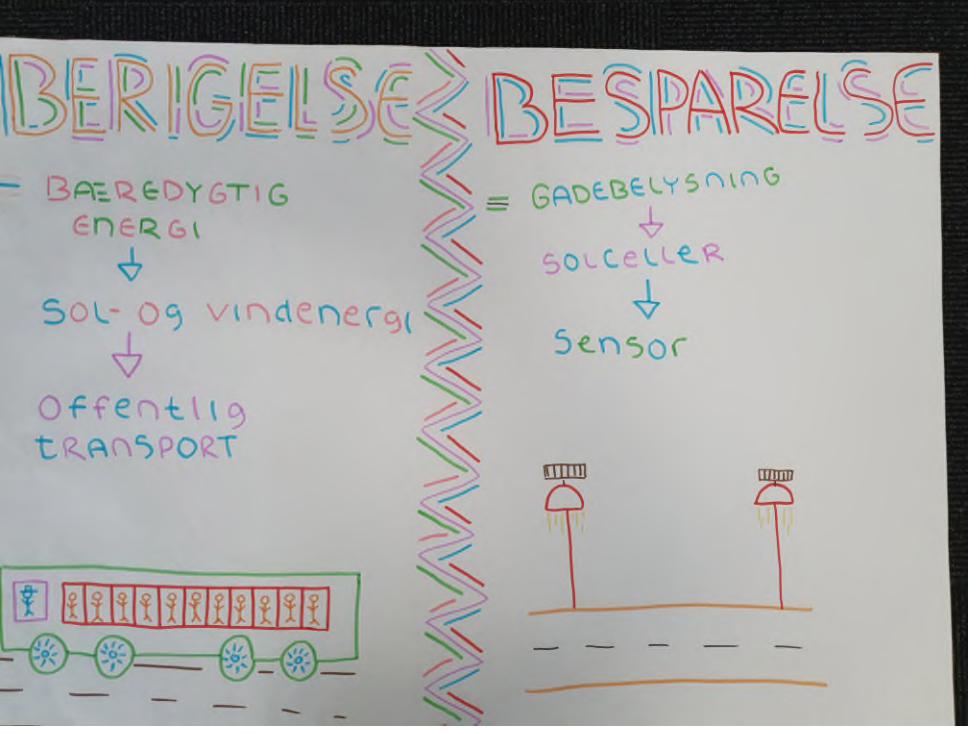 BERIGELSE
= BAEREDYGTIG
ENERGI
↓
Sol- og vindenergi
↓
Offentlig
TRANSPORT
BESPARELSE
= GADEBELYSNING
↓
SOLCELLER
↓
Sensor